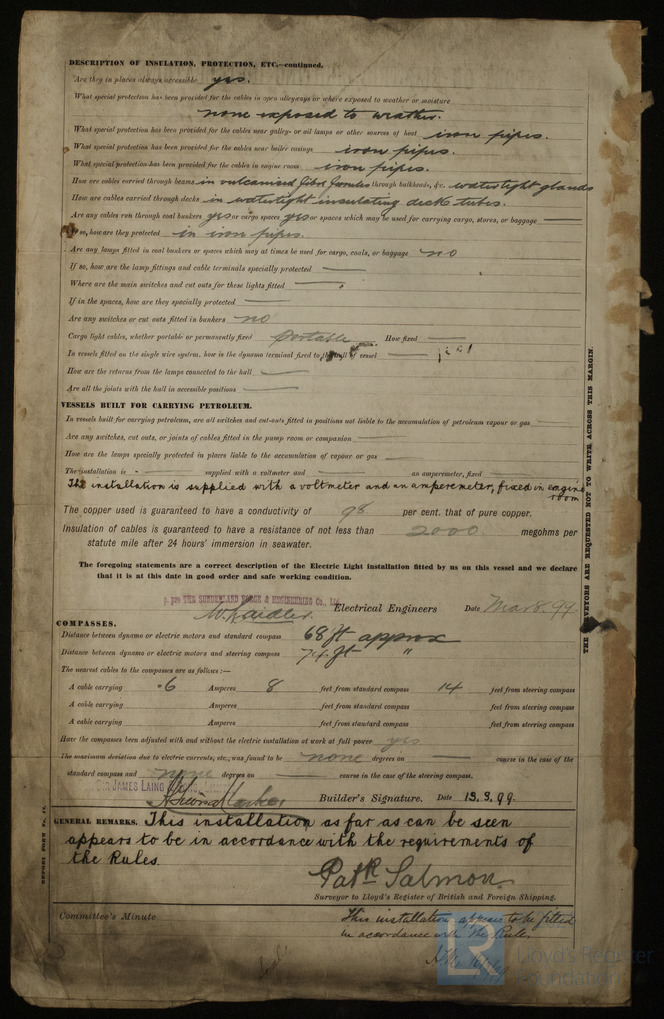 DESCRIPTION OF INSULATION, PROTECTION, ETC.—continued.
Are they in places always accessible yes.
What special protection has been provided for the cables in open alleyways or where exposed to weather or moisture
none exposed to weather.
What special protection has been provided for the cables near galleys or oil lamps or other sources of heat iron pipes.
What special protection has been provided for the cables near boiler casings iron pipes.
What special protection has been provided for the cables in engine room iron pipes.
How are cables carried through beams in vulcanised fibre through bulkheads, &c. watertight glands
How are cables carried through decks in watertight insulating deck tubes.
Are any cables run through coal bunkers yes or cargo spaces yes or spaces which may be used for carrying cargo, stores, or baggage —
If so, how are they protected in iron pipes.
Are any lamps fitted in coal bunkers or spaces which may at times be used for cargo, coals, or baggage no
If so, how are the lamp fittings and cable terminals specially protected —
Where are the main switches and cut outs for these lights fitted —
If in the spaces, how are they specially protected —
Are any switches or cut outs fitted in bunkers no
Cargo light cables, whether portable or permanently fixed portable How fixed —
In vessels fitted on the single wire system, how is the dynamo terminal fixed to the hull of vessel —
How are the returns from the lamps connected to the hull —
Are all the joints with the hull in accessible positions —
VESSELS BUILT FOR CARRYING PETROLEUM.
In vessels built for carrying petroleum, are all switches and cut-outs fitted in positions not liable to the accumulation of petroleum vapour or gas —
Are any switches, cut outs, or joints of cables fitted in the pump room or companion —
How are the lamps specially protected in places liable to the accumulation of vapour or gas —
The installation is — supplied with a voltmeter and — an amperemeter, fixed —
The installation is supplied with a voltmeter and an amperemeter, fixed in engine room
The copper used is guaranteed to have a conductivity of 98 per cent. that of pure copper.
Insulation of cables is guaranteed to have a resistance of not less than 2000 megohms per
statute mile after 24 hours' immersion in seawater.
The foregoing statements are a correct description of the Electric Light installation fitted by us on this vessel and we declare
that it is at this date in good order and safe working condition.
p. pro THE SUNDERLAND FORGE & ENGINEERING Co., Ltd.
Electrical Engineers Date Mar 8. 99.
COMPASSES.
Distance between dynamo or electric motors and standard compass 68 ft approx
Distance between dynamo or electric motors and steering compass 74 ft "
The nearest cables to the compasses are as follows:—
A cable carrying .6 Amperes 8 feet from standard compass 14 feet from steering compass
A cable carrying Amperes feet from standard compass feet from steering compass
A cable carrying Amperes feet from standard compass feet from steering compass
Have the compasses been adjusted with and without the electric installation at work at full power yes
The maximum deviation due to electric currents, etc., was found to be none degrees on — course in the case of the
standard compass and none degrees on — course in the case of the steering compass.
SIR JAMES LAING
Builder's Signature. Date 13.3.99.
GENERAL REMARKS. This installation as far as can be seen
appears to be in accordance with the requirements of
the Rules.
Patk Salmon.
Surveyor to Lloyd's Register of British and Foreign Shipping.
Committee's Minute
This installation appears to be fitted
in accordance with the Rules
THE SURVEYORS ARE REQUESTED NOT TO WRITE ACROSS THIS MARGIN.
LR
Lloyd's Register
Foundation